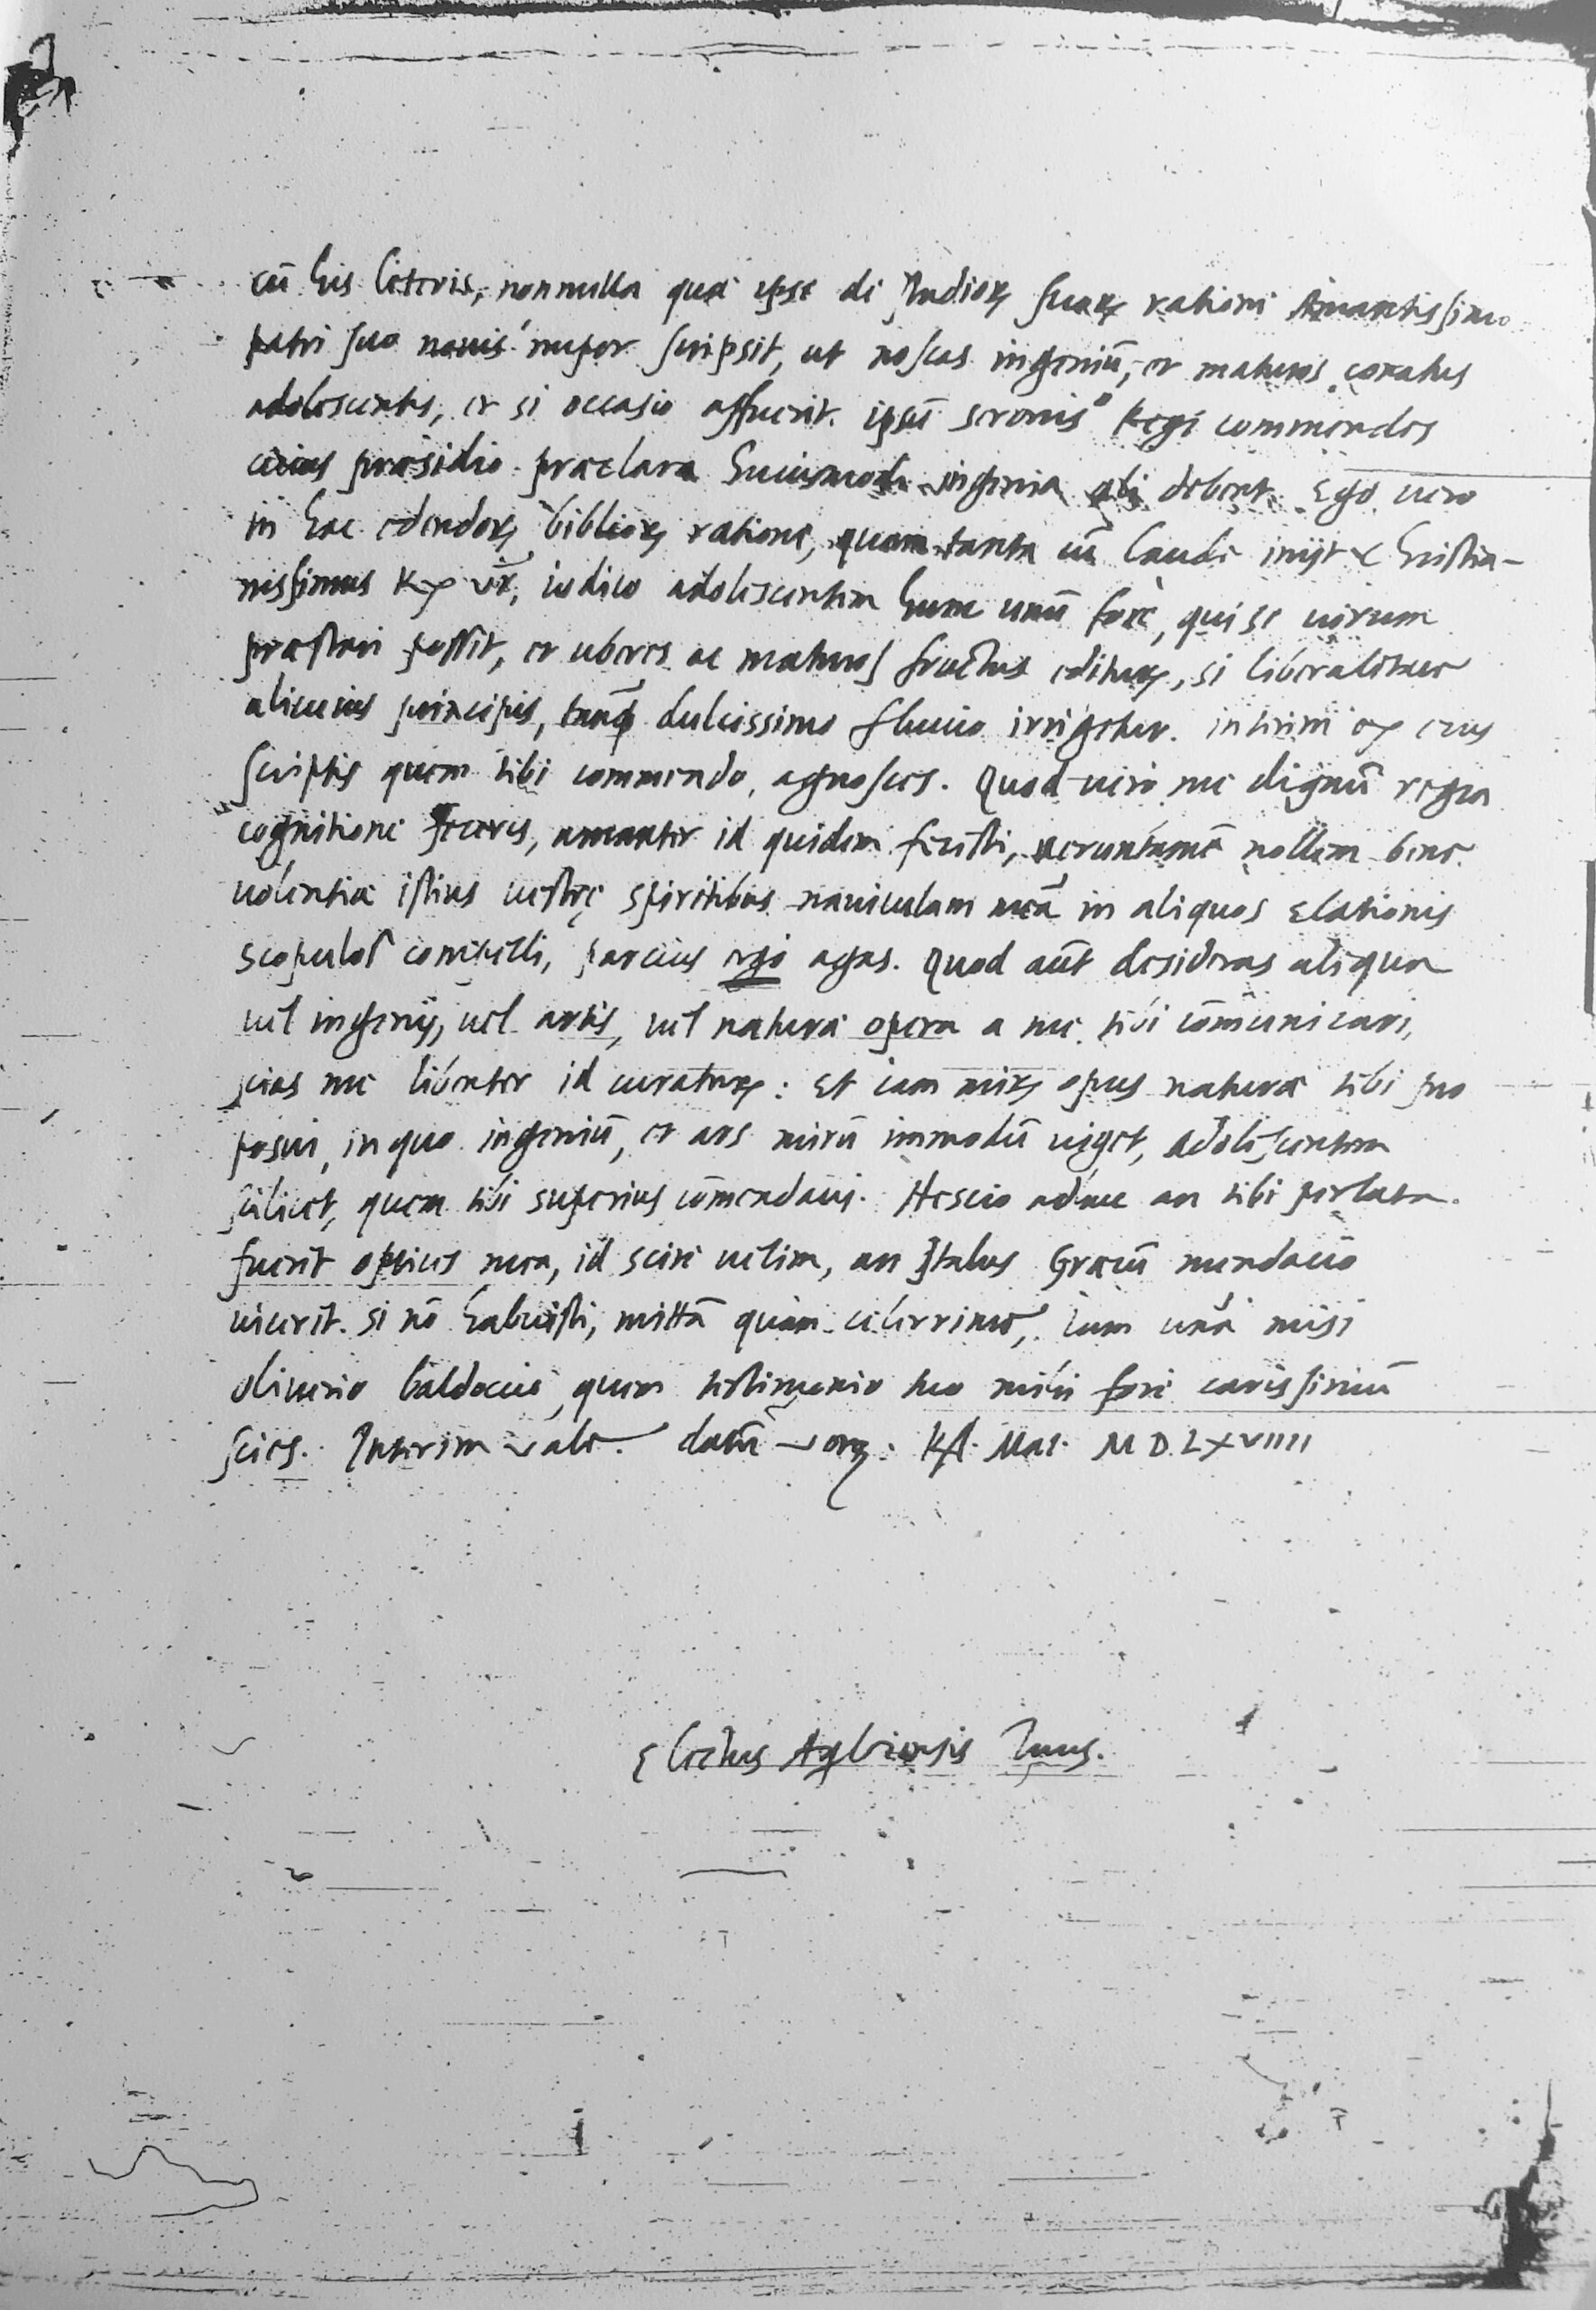 cū his literis, nonnulla quæ ipse de studioꝝ suoꝝ ratione Amantissimo
patri suo nuper scripsit, ut noscas ingeniū, et maturos conatus
adolescentis, et si occasio affuerit ipsū sereniss.º Regi commendes
cuius præsidio præclara huiusmodi ingenia ali debent. Ego uero
in hac edendoꝝ biblioꝝ ratione, quam tanta cū laude inijt Christia-
nissimus Rex vr̄, iudico adolescentem hunc unū fore, qui se uirum
præstare possit, et uberes ac maturos fructus edituꝝ, si liberalitate
alicuius principis, tanq̄ dulcissimo fluuio irrigetur. interim ex eius
scriptis quem tibi commendo, agnosces. Quod uero me dignū regia
cognitione feceris, amanter id quidem fecisti, ueruntamē nollem bene
uolentiæ istius uestrę spiritibus nauiculam meā in aliquos Elationis
scopulos compelli, parcius ergo agas. Quod aūt desideras aliqua
uel ingenij, uel artis, uel naturæ opera a me tibi cōmunicari,
scias me libenter id curatuꝝ: Et iam miꝝ opus naturæ tibi pro
posui, in quo ingeniū, et ars mirū immodū uiget, Adolescentem
scilicet, quem tibi superius cōmendaui. Nescio adhuc an tibi perlata
fuerit opticis mea, id scire uelim, an Italus Græcū mendacio
uicerit. si nō habuisti, mittā quàm celerrime, iam unā misi
oliuerio baldoccio, quem testimonio tuo mihi fore carissimū
scies. Interim vale. datū veroꝝ. Kl. Mai. M D. LXVIIII
Electus Tuus.